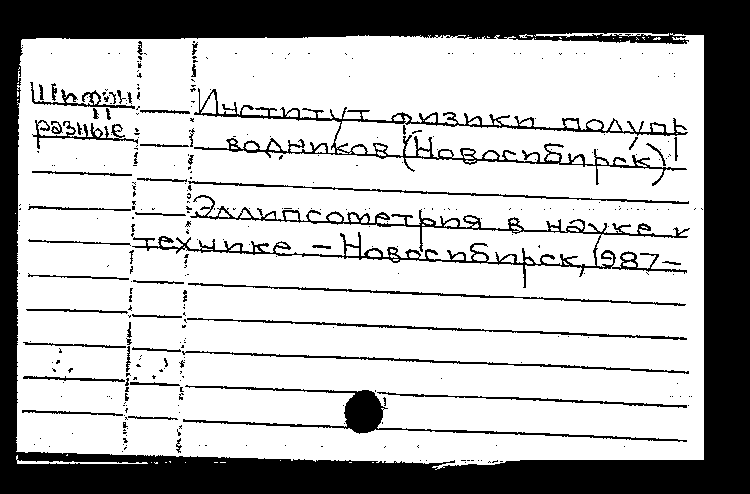 Шифры Институт физики полупр
разные водников (Новосибирск).
Эллипсометрия в науке и
технике. – Новосибирск, 1987–